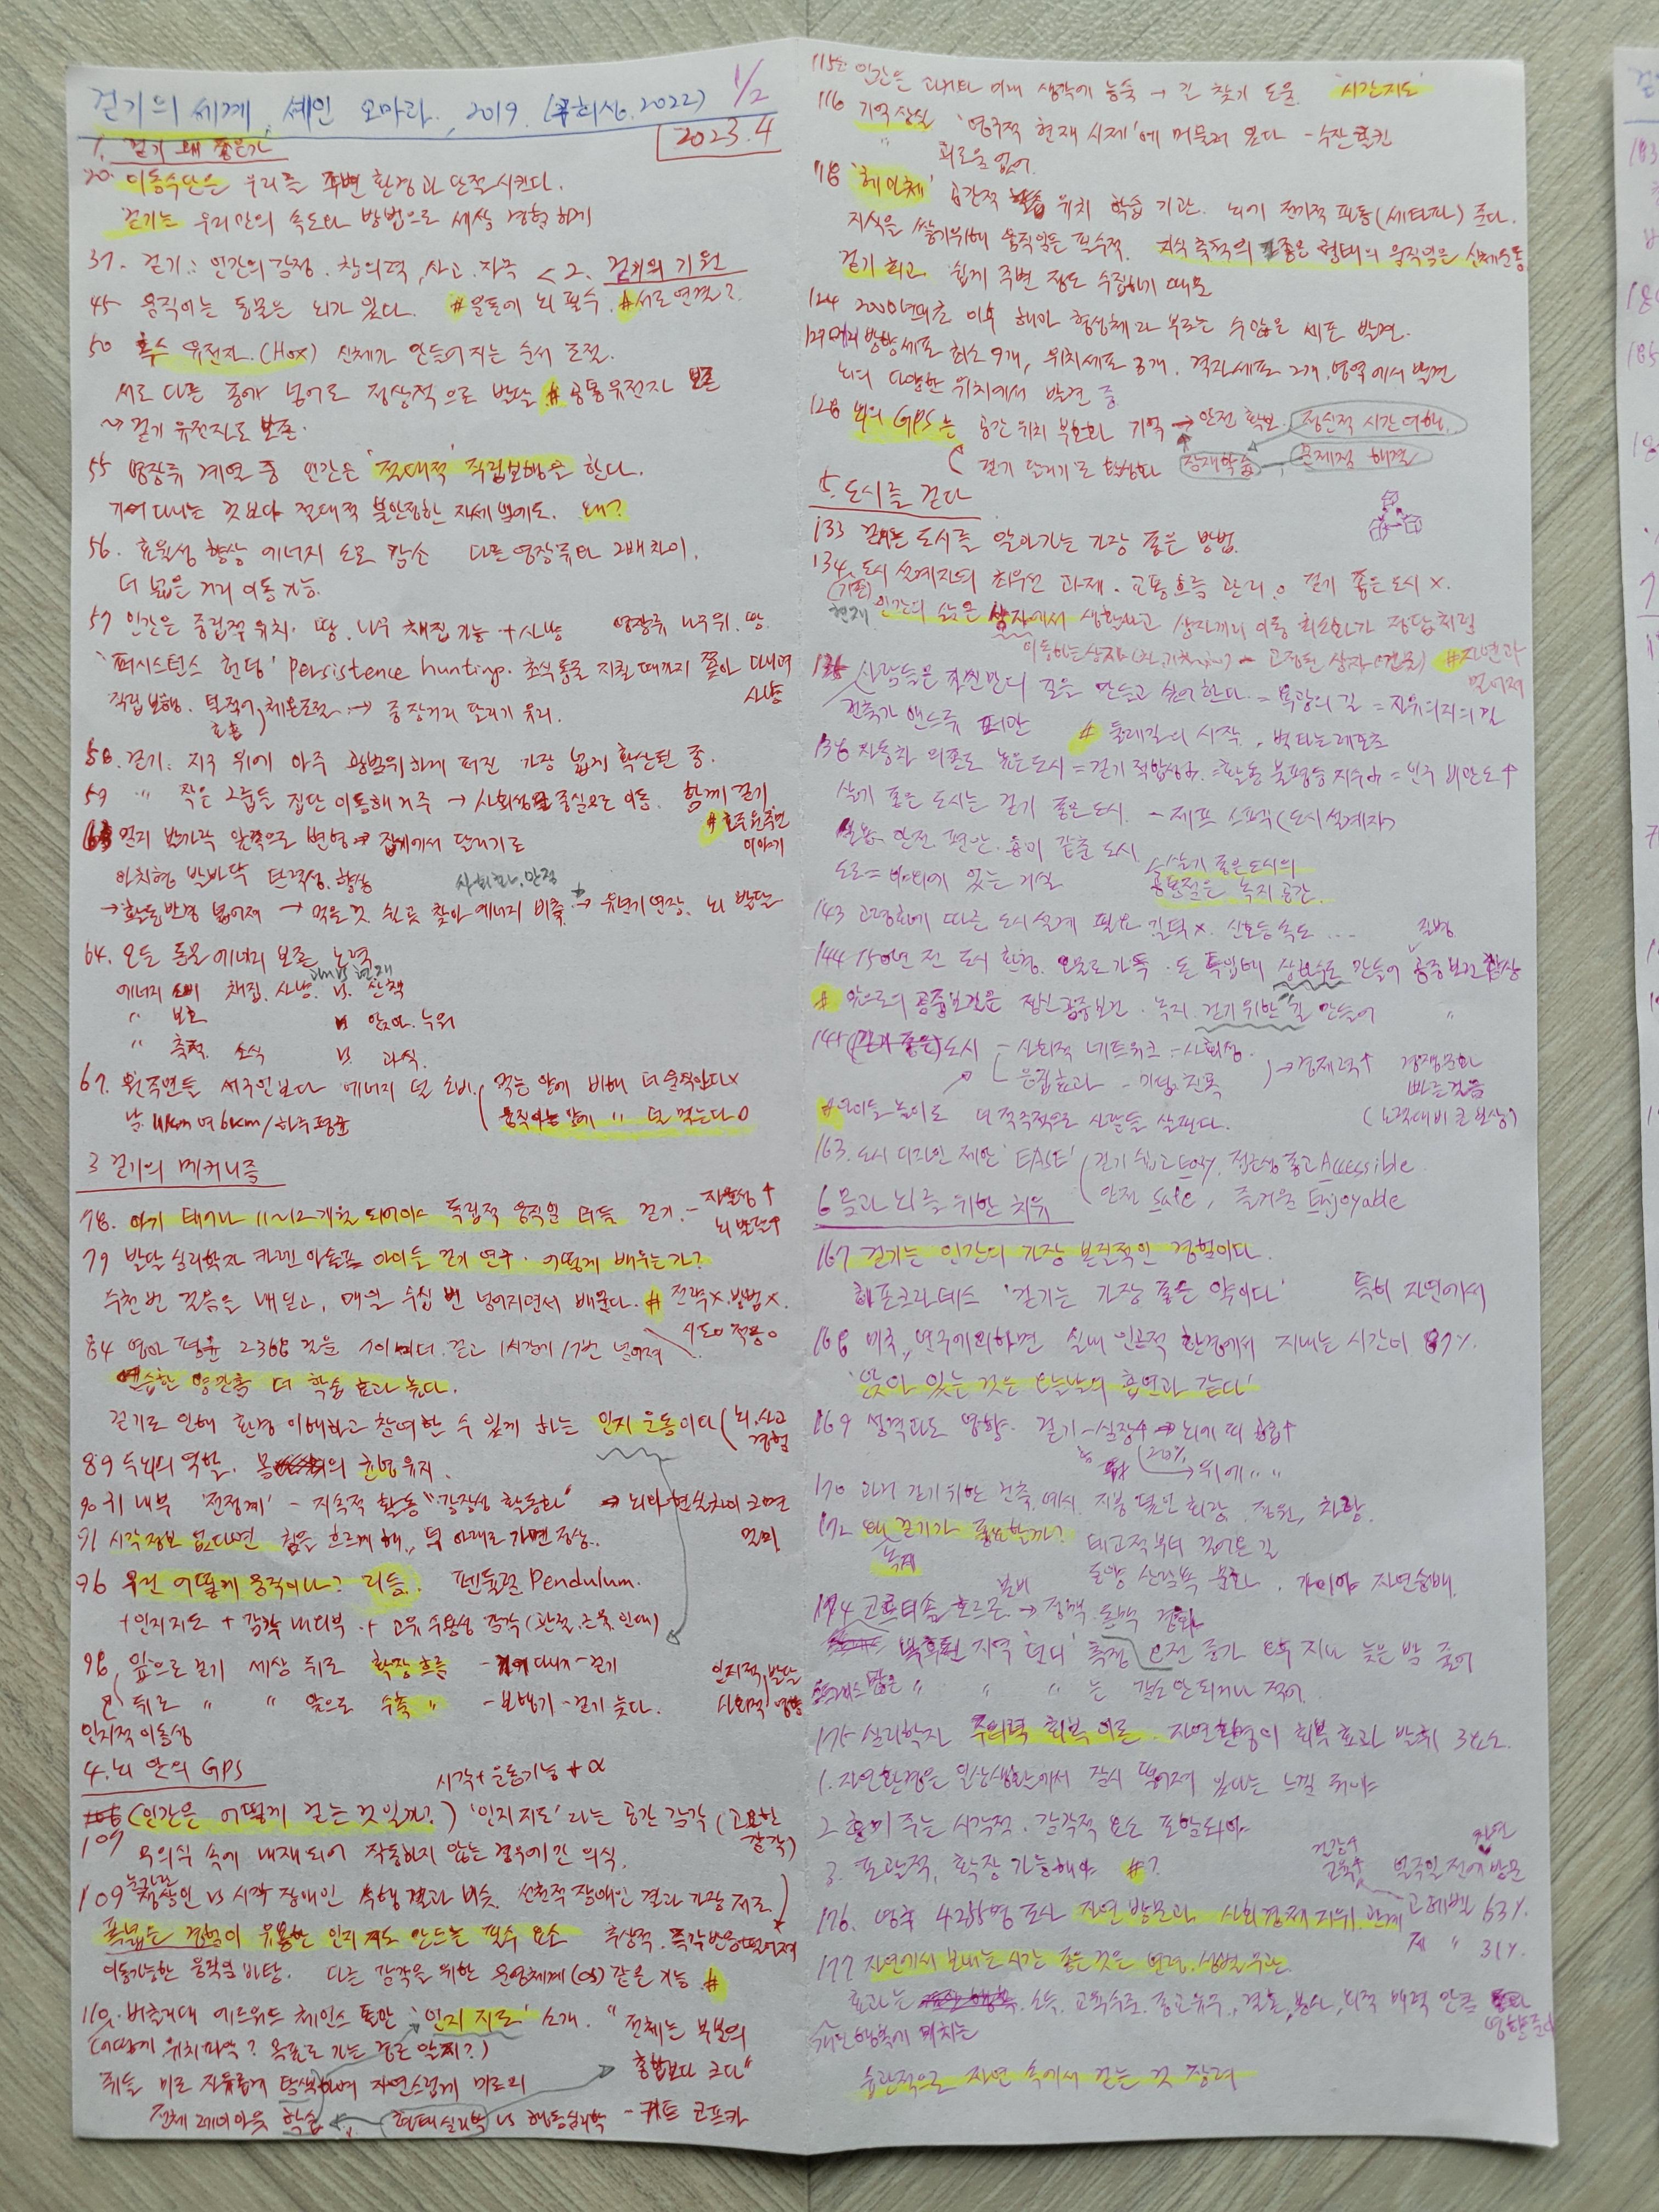 걷기의 세계, 셰인 오마라, 2019. (구희성, 2022) 1/2
2023.4
1. 걷기 왜 좋은가
20. 이동수단은 우리를 주변 환경과 단절시킨다.
걷기는 우리만의 속도와 방법으로 세상 경험하기
37. 걷기: 인간의 감정, 창의력, 사고, 자극 < 2. 걷기의 기원
45 움직이는 동물은 뇌가 있다. #운동에 뇌 필수. #서로연결?
50 혹스 유전자.(Hox) 신체가 만들어지는 순서 조절.
서로 다른 종에 넣어도 정상적으로 발달 #공통유전자 보존
~> 걷기 유전자도 보존.
55 영장류 계열 중 인간은 '절대적' 직립보행을 한다.
기어다니는 것보다 절대적 불안정한 자세임에도. 왜?
56. 효율성 향상 에너지 소모 감소 다른 영장류와 2배 차이.
더 넓은 거리 이동 가능.
57 인간은 중첩적 위치. 땅, 나무 채집 가능 + 사냥 영장류 나무위, 땅.
'퍼시스턴스 헌팅' persistence hunting. 초식동물 지칠 때까지 쫓아 다니며 사냥
직립보행. 털적어, 체온조절 → 중장거리 달리기 유리.
호흡
58. 걷기. 지구 위에 아주 광범위하게 퍼진 가장 넓게 확산된 종.
59 " 작은 그룹들 집단 이동해 거주 → 사회성을 중심으로 이동. 함께 걷기
#호주원주민 이야기
63 엄지 발가락 앞쪽으로 변형 → 집게에서 달리기로
아치형 발바닥 탄력성 향상 사회화, 안정
→ 활동반경 넓어져 → 먹을 것, 쉴 곳 찾아 에너지 비축 → 유년기 연장. 뇌 발달
64. 모든 동물 에너지 보존 노력
과거 vs 현재
에너지 소비 채집. 사냥. vs. 산책
" 보호 vs 앉아. 누워
" 축적 소식 vs 과식.
67. 원주민들 서구인보다 에너지 덜 소비. (먹는 양에 비해 더 움직인다 X
남. 11km 여 6km/하루평균 움직이는 양에 " 덜 먹는다 O
3 걷기의 메커니즘
78. 아기 태어나 11~12개월 되어야 독립적 움직임 터득 걷기. - 자율성↑ 뇌 발달↑
79 발달 심리학자 카렌 아돌프 아이들 걷기 연구. 어떻게 배우는가?
수천 번 걸음을 내딛고, 매일 수십 번 넘어지면서 배운다. # 전략X. 방법X.
시도O 적응O
84 영아 평균 2368 걸음 701미터 걷고 1시간에 17번 넘어져
연습한 영만큼 더 학습 효과 높다.
걷기로 인해 환경 이해하고 참여할 수 있게 하는 인지 운동이다 (뇌, 사고 경험
89 두뇌의 역할. 몸의 균형 유지.
90 귀 내부 '전정계' - 지속적 활동 "긴장성 활동화" → 뇌와 현실차이 크면 멀미
91 시각정보 없다면 침을 흐르게 해, 턱 아래로 가면 정상.
96 우린 어떻게 움직이나? 리듬. 펜듈럼 Pendulum.
+ 인지지도 + 감각 내외부 + 고유 수용성 감각 (관절, 근육, 인대)
98 앞으로 걷기 세상 뒤로 확장 흐름 - 기어다니기 - 걷기 인지적, 발달
뒤로 " " 앞으로 수축 " - 보행기 - 걷기 늦다. 사회적 영향
인지적 이동성
4. 뇌 안의 GPS 시각+운동기능+α
(인간은 어떻게 걷는 것일까?) '인지 지도'라는 공간 감각 (고요한 감각)
109 무의식 속에 내재되어 작동하지 않는 경우에만 의식.
109 정상인 vs 시각 장애인 수행 결과 비슷. 선천적 장애인 결과 가장 저조.
폭넓은 경험이 유용한 인지 지도 만드는 필수 요소 추상적. 즉각반응 떨어져
이동가능한 움직임 바탕. 다른 감각을 위한 운영체계(OS) 같은 기능 #
110. 버클리대 에드워드 체이스 톨만 '인지 지도' 소개. "전체는 부분의
(어떻게 위치파악? 목표로 가는 경로 알지?) 총합보다 크다"
쥐들 미로 자유롭게 탐색하며 자연스럽게 미로의
전체 레이아웃 학습 형태심리학 vs 행동심리학 - 커트 코프카
115 인간은 과거와 미래 생각에 능숙 → 길 찾기 도움. '시간지도'
116 기억상실 '영구적 현재 시제'에 머물러 있다 - 수잔 코킨
" 괴로움 없어.
118 '해마체' 공간적 위치 학습 기관. 뇌에 전기적 파동(세타파) 준다.
지식을 쌓기위해 움직임은 필수적. 지식 축적의 좋은 형태의 움직임은 신체운동
걷기 최고. 쉽게 주변 정보 수집하기 때문
124 2000년대초 이후 해마 형성체라 부르는 수많은 세포 발견.
127 머리방향세포 최소 9개, 위치세포 3개, 격자세포 2개, 영역에서 발견
뇌의 다양한 위치에서 발견 중
128 뇌의 GPS는 공간 위치 부호화 기억 → 안전 확보. 정신적 시간여행.
걷기 달리기로 활성화 잠재학습, 문제점 해결
5. 도시를 걷다
133 걷기는 도시를 알아가는 가장 좋은 방법.
134. 도시 설계자의 최우선 과제. 교통흐름 관리 O 걷기 좋은 도시 X.
(기존)
현재 인간의 삶은 상자에서 생활하고 상자끼리 이동 최소화가 정답처럼
이동하는 상자 (차, 기차...) - 고정된 상자 (건물) #자연과 멀어져
사람들은 직접 만든 길을 만들고 싶어한다. = 욕망의 길 = 자유의지의 길
건축가 앤드류 퍼먼 # 둘레길의 시작, 벽타는 레포츠
138 자동차 의존도 높은도시 = 걷기 적합성↓ = 활동 불평등 지수↑ = 인구 비만도↑
살기 좋은 도시는 걷기 좋은도시. - 제프 스펙 (도시설계자)
실용. 안전. 편안. 흥미 갖춘 도시
도로 = 바깥에 있는 거실 살기 좋은도시의 공통점은 녹지 공간.
143 고령화에 따른 도시설계 필요. 길턱X. 신호등속도 ...
144 150년 전 도시 환경. 오물로 가득. 돈 투입해 상하수도 만들어 공중보건 향상
질병
# 앞으로의 공중보건은 정신공중보건. 녹지. 걷기 위한 길 만들어 "
145 (걷기 좋은) 도시 - 사회적 네트워크 - 사회성. → 경제력↑ 경쟁문화 빠른걸음
- 운집효과 - 기업, 친목 (노력대비 큰 보상)
#아이들 놀이로 더 적극적으로 사람들 살핀다.
163. 도시 디자인 제안 'EASE' (걷기 쉽고 Easy, 접근성 좋고 Accessible
안전 safe, 즐거운 Enjoyable
6 몸과 뇌를 위한 치유
167 걷기는 인간의 가장 본질적인 경험이다.
히포크라테스 '걷기는 가장 좋은 약이다' 특히 자연에서
168 미국, 연구에의하면 실내 인공적 환경에서 지내는 시간이 87%.
'앉아 있는 것은 오늘날의 흡연과 같다'
169 성격과도 영향. 걷기 - 심장↑ → 뇌에 피 공급↑
(20% → 위에 " "
170 과거 걷기 위한 건축 예시. 지붕 덮인 회랑, 정원, 차량.
172 왜 걷기가 중요할까? 태고적부터 걸어온 길
녹지 동양 산림욕 문화. 가이아 자연숭배.
174 코르티솔 호르몬 분비 → 정맥. 동맥 경화
낙후된 지역 '던디' 측정 오전 증가 오후 지나 늦은 밤 줄어
녹지 많은 " " " 는 감소 안 되거나 적어.
175 심리학자 주의력 회복 이론. 자연환경이 회복 효과 발휘 3요소.
1. 자연환경은 일상생활에서 잠시 떨어져 있다는 느낌 줘야
2. 흥미 주는 시각적, 감각적 요소 포함되야
3. 포괄적, 확장 가능해야 #?
건강↑ 교육↑ 일주일 전에 방문 자연
176. 영국 4255명 조사 자연 방문과 사회경제 지위 관계 고레벨 63%.
저 " 31%.
177 자연에서 보내는 시간 좋은 것은 연령, 성별 무관.
효과는 소득, 교육수준, 종교유무, 결혼, 봉사, 외적 매력 만큼 영향준다
개인 행복에 미치는
습관적으로 자연 속에서 걷는 것 장려